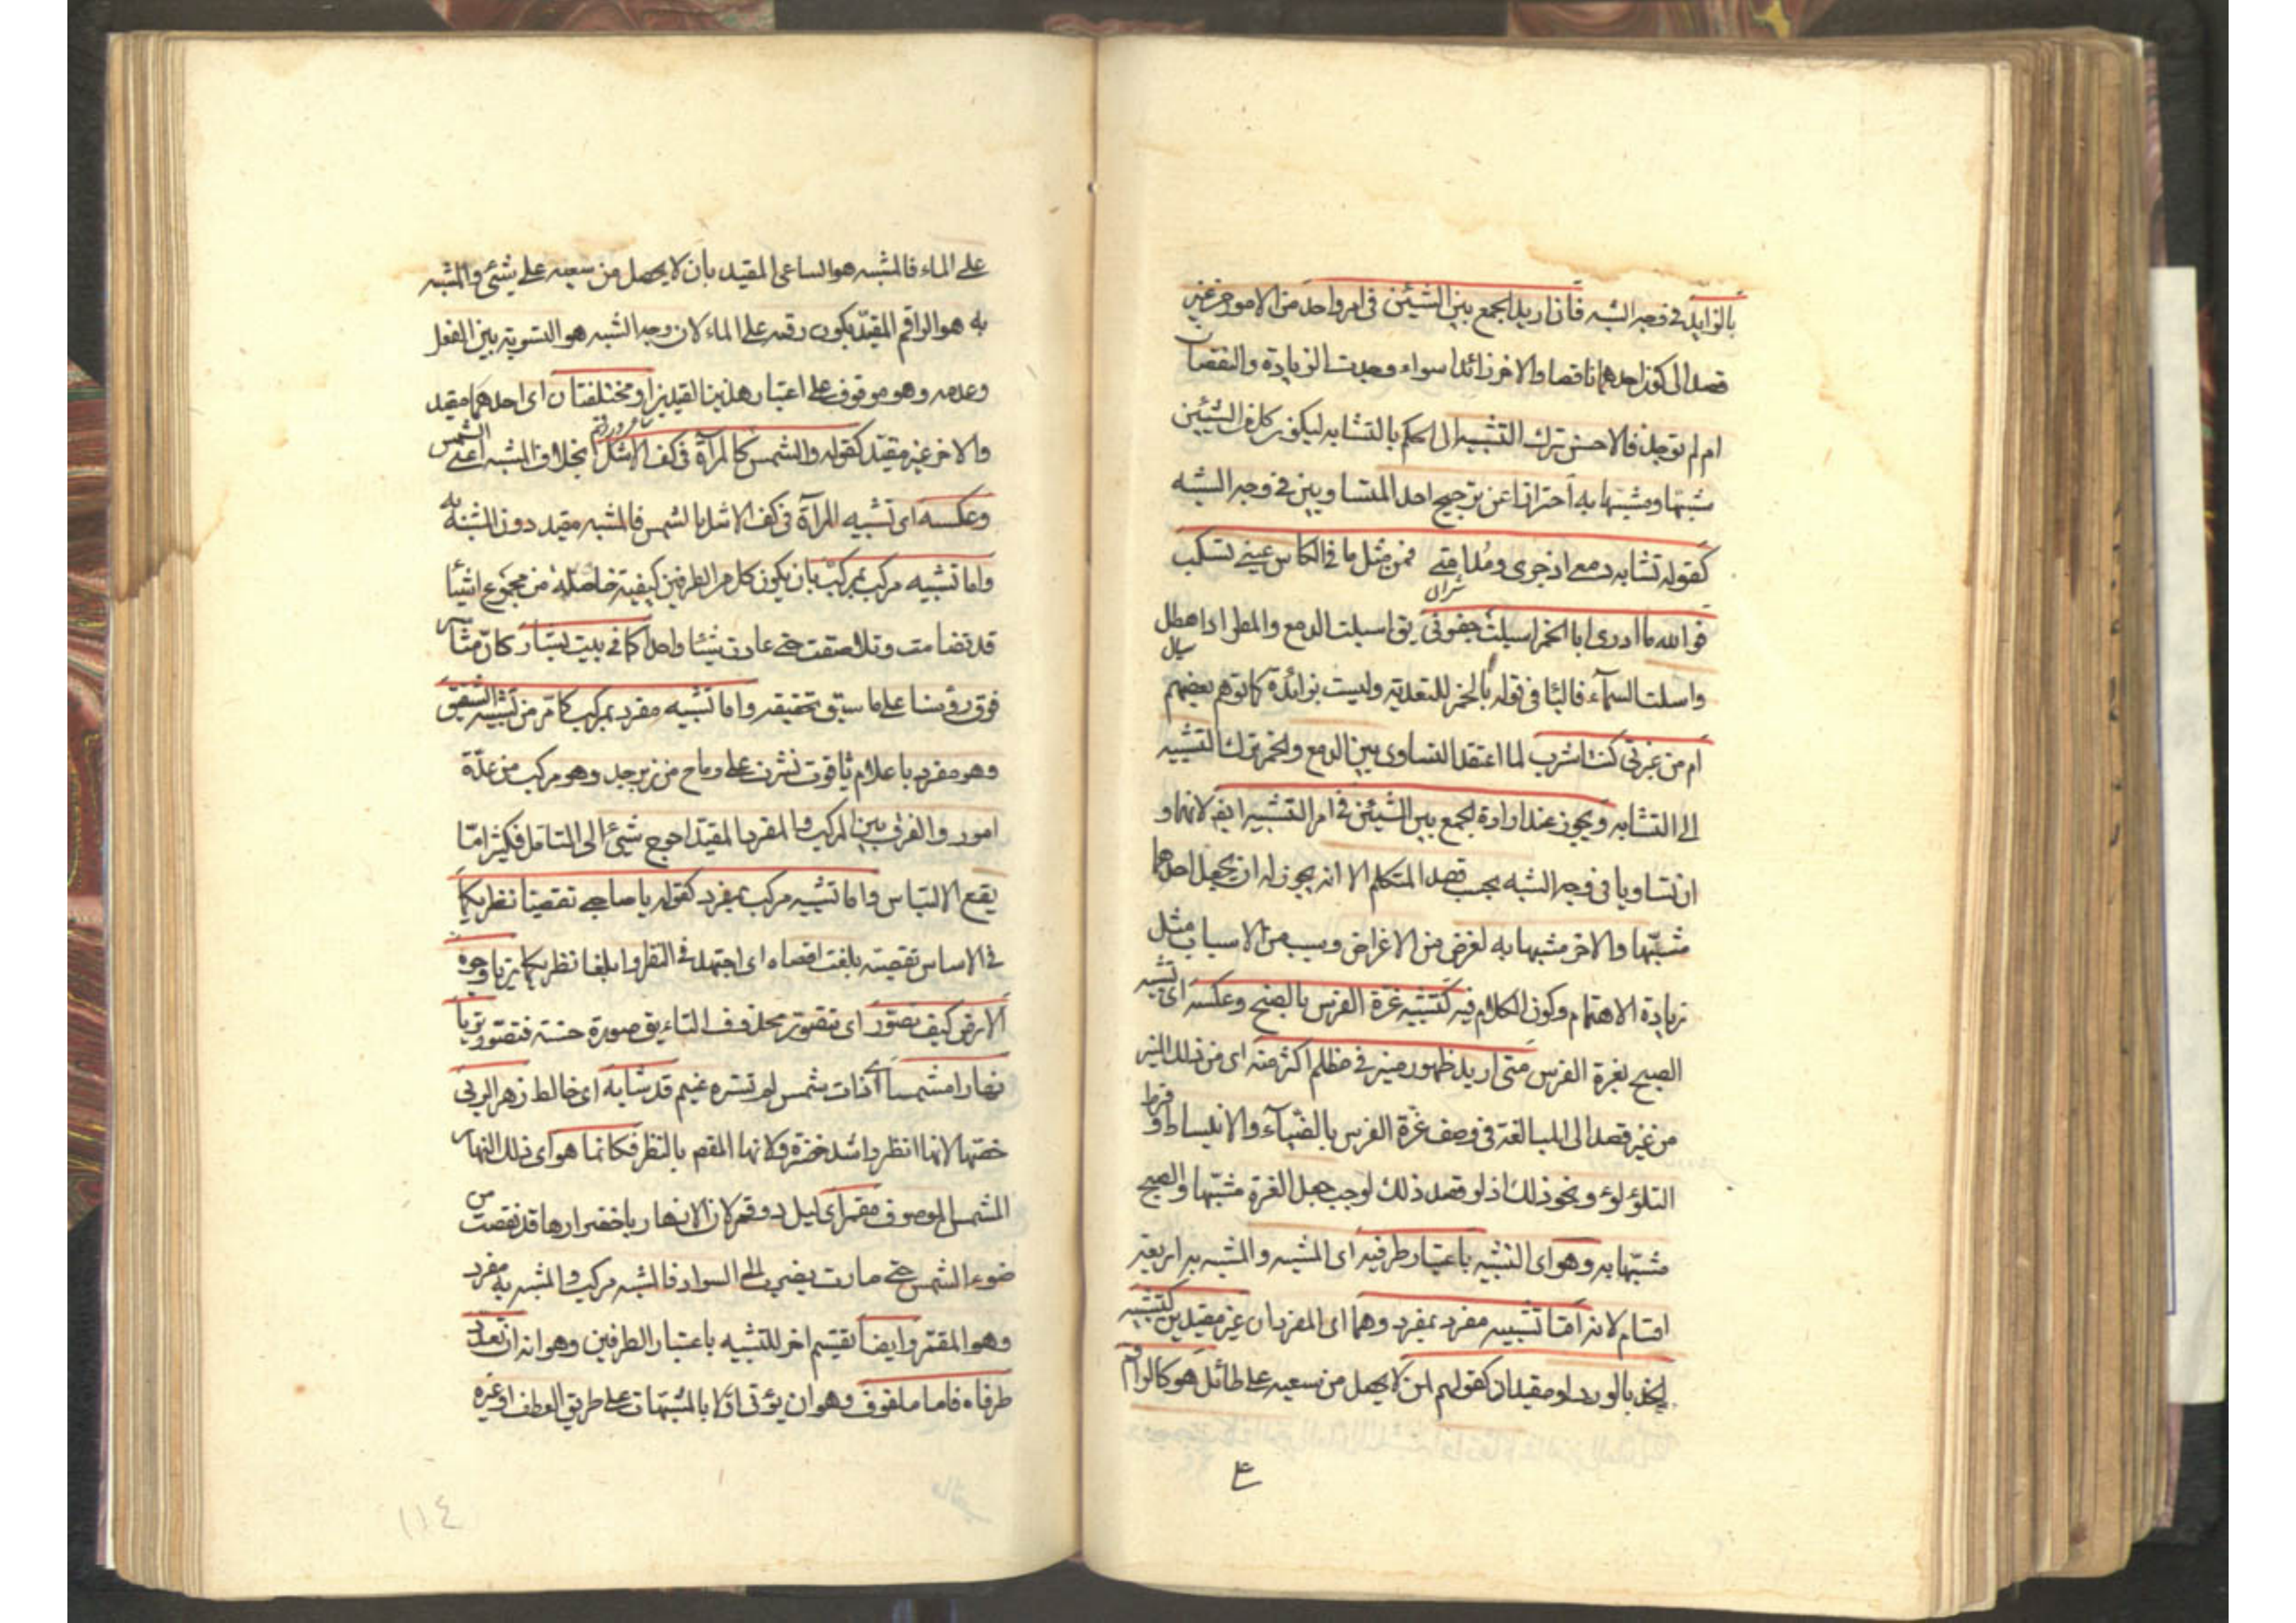 بالزايد في وجه الشبه فان اريد الجمع بين الشيئين في امر واحد من الامور من غير
قصد الى كون احدهما ناقصا والاخر زائدا سواء وجدت الزيادة والنقصان
ام لم توجد فالاحسن ترك التشبيه الى الحكم بالتشابه ليكون كل من الشيئين
مشبها ومشبها به احترازا عن ترجيح احد المتساويين في وجه الشبه
كقوله تشابه دمعي اذ جرى ومدامتي فمن مثل ما في الكاس عيني تسكب
فوالله ما ادرى ابالخمر اسبلت جفوني يق اسبلت الدمع والمطر اذا هطل
سال
واسلت السمآء فالبا في قوله بالخمر للتعدية وليست بزائدة كما توهم بعضهم
ام من عبرتي كنت اشرب لما اعتقد التساوى بين الدمع والخمر ترك التشبيه
الى التشابه ويجوز عند ارادة الجمع بين الشيئين في امر التشبيه ايض لانهما و
ان تساويا في وجه الشبه بحسب قصد المتكلم الا انه يجوز له ان يجعل احدهما
مشبها والاخر مشبها به لغرض من الاغراض وسبب من الاسباب مثل
زيادة الاهتمام وكون الكلام فيه كتشبيه غرة الفرس بالصبح وعكسه اى تشبيه
الصبح بغرة الفرس متى اريد ظهور منير في مظلم اكثر منه اى من ذلك المنير
من غير قصد الى المبالغة في وصف غرة الفرس بالضيآء والانبساط وفرط
التلؤلوء ونحو ذلك اذ لو قصد ذلك لوجب جعل الغرة مشبها والصبح
مشبها به وهو اى التشبيه باعتبار طرفيه اى المشبه والمشبه به اربعة
اقسام لانه اما تشبيه مفرد بمفرد وهما اى المفردان غير مقيدين كتشبيه
الخد بالورد او مقيدان كقولهم لمن لا يحصل من سعيه على طائل هو كالراقم
ع
على الماء فالمشبه هو الساعى المقيد بان لا يحصل من سعيه على شئ والمشبه
به هو الراقم المقيد بكون رقمه على الماء لان وجه الشبه هو التسوية بين الفعل
وعدمه وهو موقوف على اعتبار هذين القيدين او مختلفتان اى احدهما مقيد
والاخر غير مقيد كقوله والشمس كالمرآة في كف الاشل بخلاف المشبه اعنى الشمس
وعكسه اى تشبيه المرآة في كف الاشل بالشمس فالمشبه مقيد دون المشبه به
واما تشبيه مركب بمركب بان يكون كل من الطرفين كيفية حاصلة من مجموع اشيآ
قد تضامت وتلاصقت حتى عادت شيئا واحدا كما في بيت بشار كان مثار
فوق رؤسنا على ما سبق تحقيقه واما تشبيه مفرد بمركب كما مر من تشبيه الشقيق
وهو مفرد باعلام ياقوت نشرن على رماح من زبرجد وهو مركب من عدة
امور والفرق بين المركب والمفرد المقيد احوج شئ الى التامل فكثير اما
يقع الالتباس واما تشبيه مركب بمفرد كقوله يا صاحبي تقصيا نظريكما
في الاساس تقصيته بلغت اقصاه اى اجتهدا في النظر وابلغا نظريكما تريا وجوه
الارض كيف تصور اى تتصور محذوف التاء يق صوره صورة حسنة فتصور تريا
نهارا مشمسا اى ذات شمس لم تستره غيم قد شابه اى خالط زهر الربى
خصها لانها انظر واشد خضرة ولانها المقصم بالنظر فكانما هو اى ذلك النهار
المشمس الموصوف مقمر اى ليل ذو قمر لان الازهار باخضرارها قد نقصت من
ضوء الشمس حتى صارت يضرب الى السواد فالمشبه مركب والمشبه به مفرد
وهو المقمر وايضا تقسيم اخر للتشبيه باعتبار الطرفين وهو انه ان تعدد
طرفاه فاما ملفوف وهو ان يؤتى اولا بالمشبهات على طريق العطف او غيره
١١٤